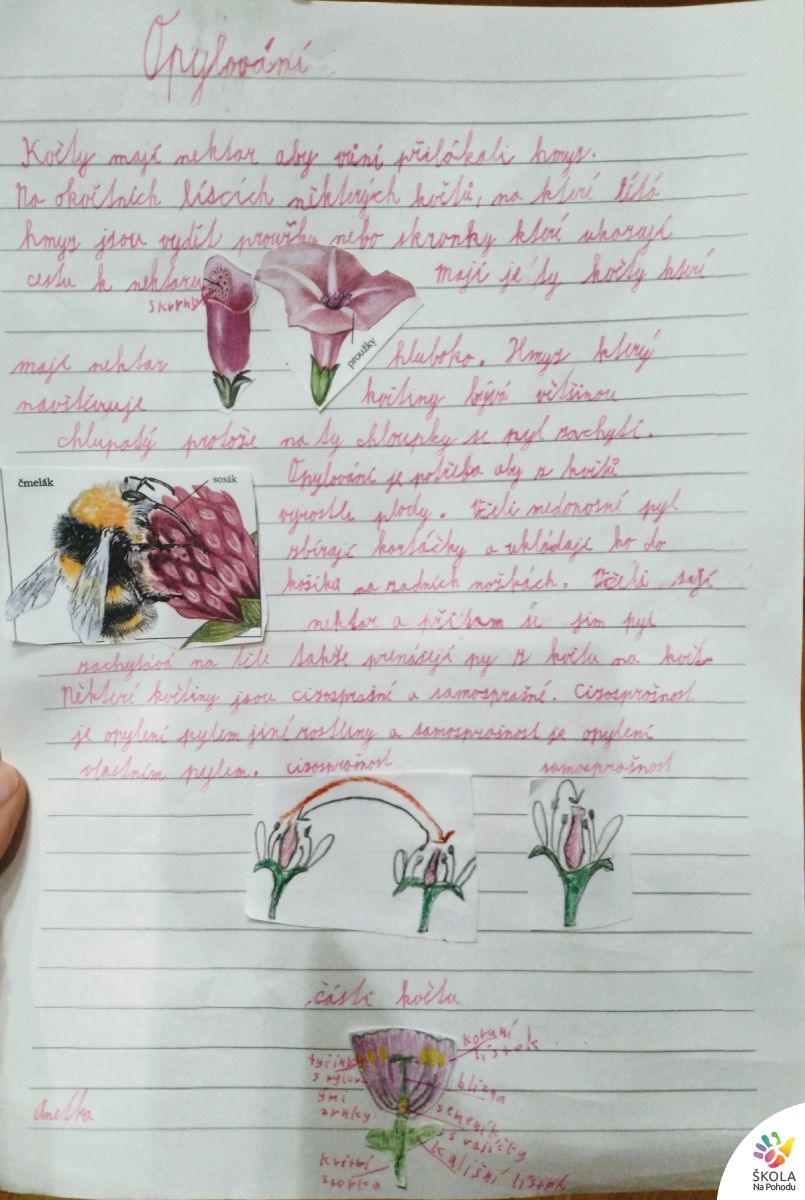 Opylování
Květy mají nektar aby vůní přilákali hmyz.
Na okvětních líscích některých květů, na které létá
hmyz jsou vydět proužky nebo skvrnky které ukazují
cestu k nektaru mají je ty květy které
skvrnky
proužky
mají nektar hluboko. Hmyz který
navštěvuje květiny bývá většinou
chlupatý protože na ty chloupky se pyl zachytí.
čmelák
sosák
Opylování je potřeba aby z květů
vyrostli plody. Včeli medonosné pyl
sbírají kartáčky a ukládají ho do
košíku na zadních nožkách. Včeli sají
nektar a při tam se jim pyl
zachytává na těle takže přenášejí py z květu na květ.
Některé květiny jsou cizosprašné a samosprašné. Cizosprašnost
je opylení pylem jiní rostliny a samosprašnost je opylení
vlastním pylem.
cizosprašnost
samosprašnost
části květu
tyčinky
s pylov
ými
zrnky
korunní
lístek
blizna
semeník
s vajíčky
kališní lístek
květní
stopka
Anežka
ŠKOLA
Na Pohodu